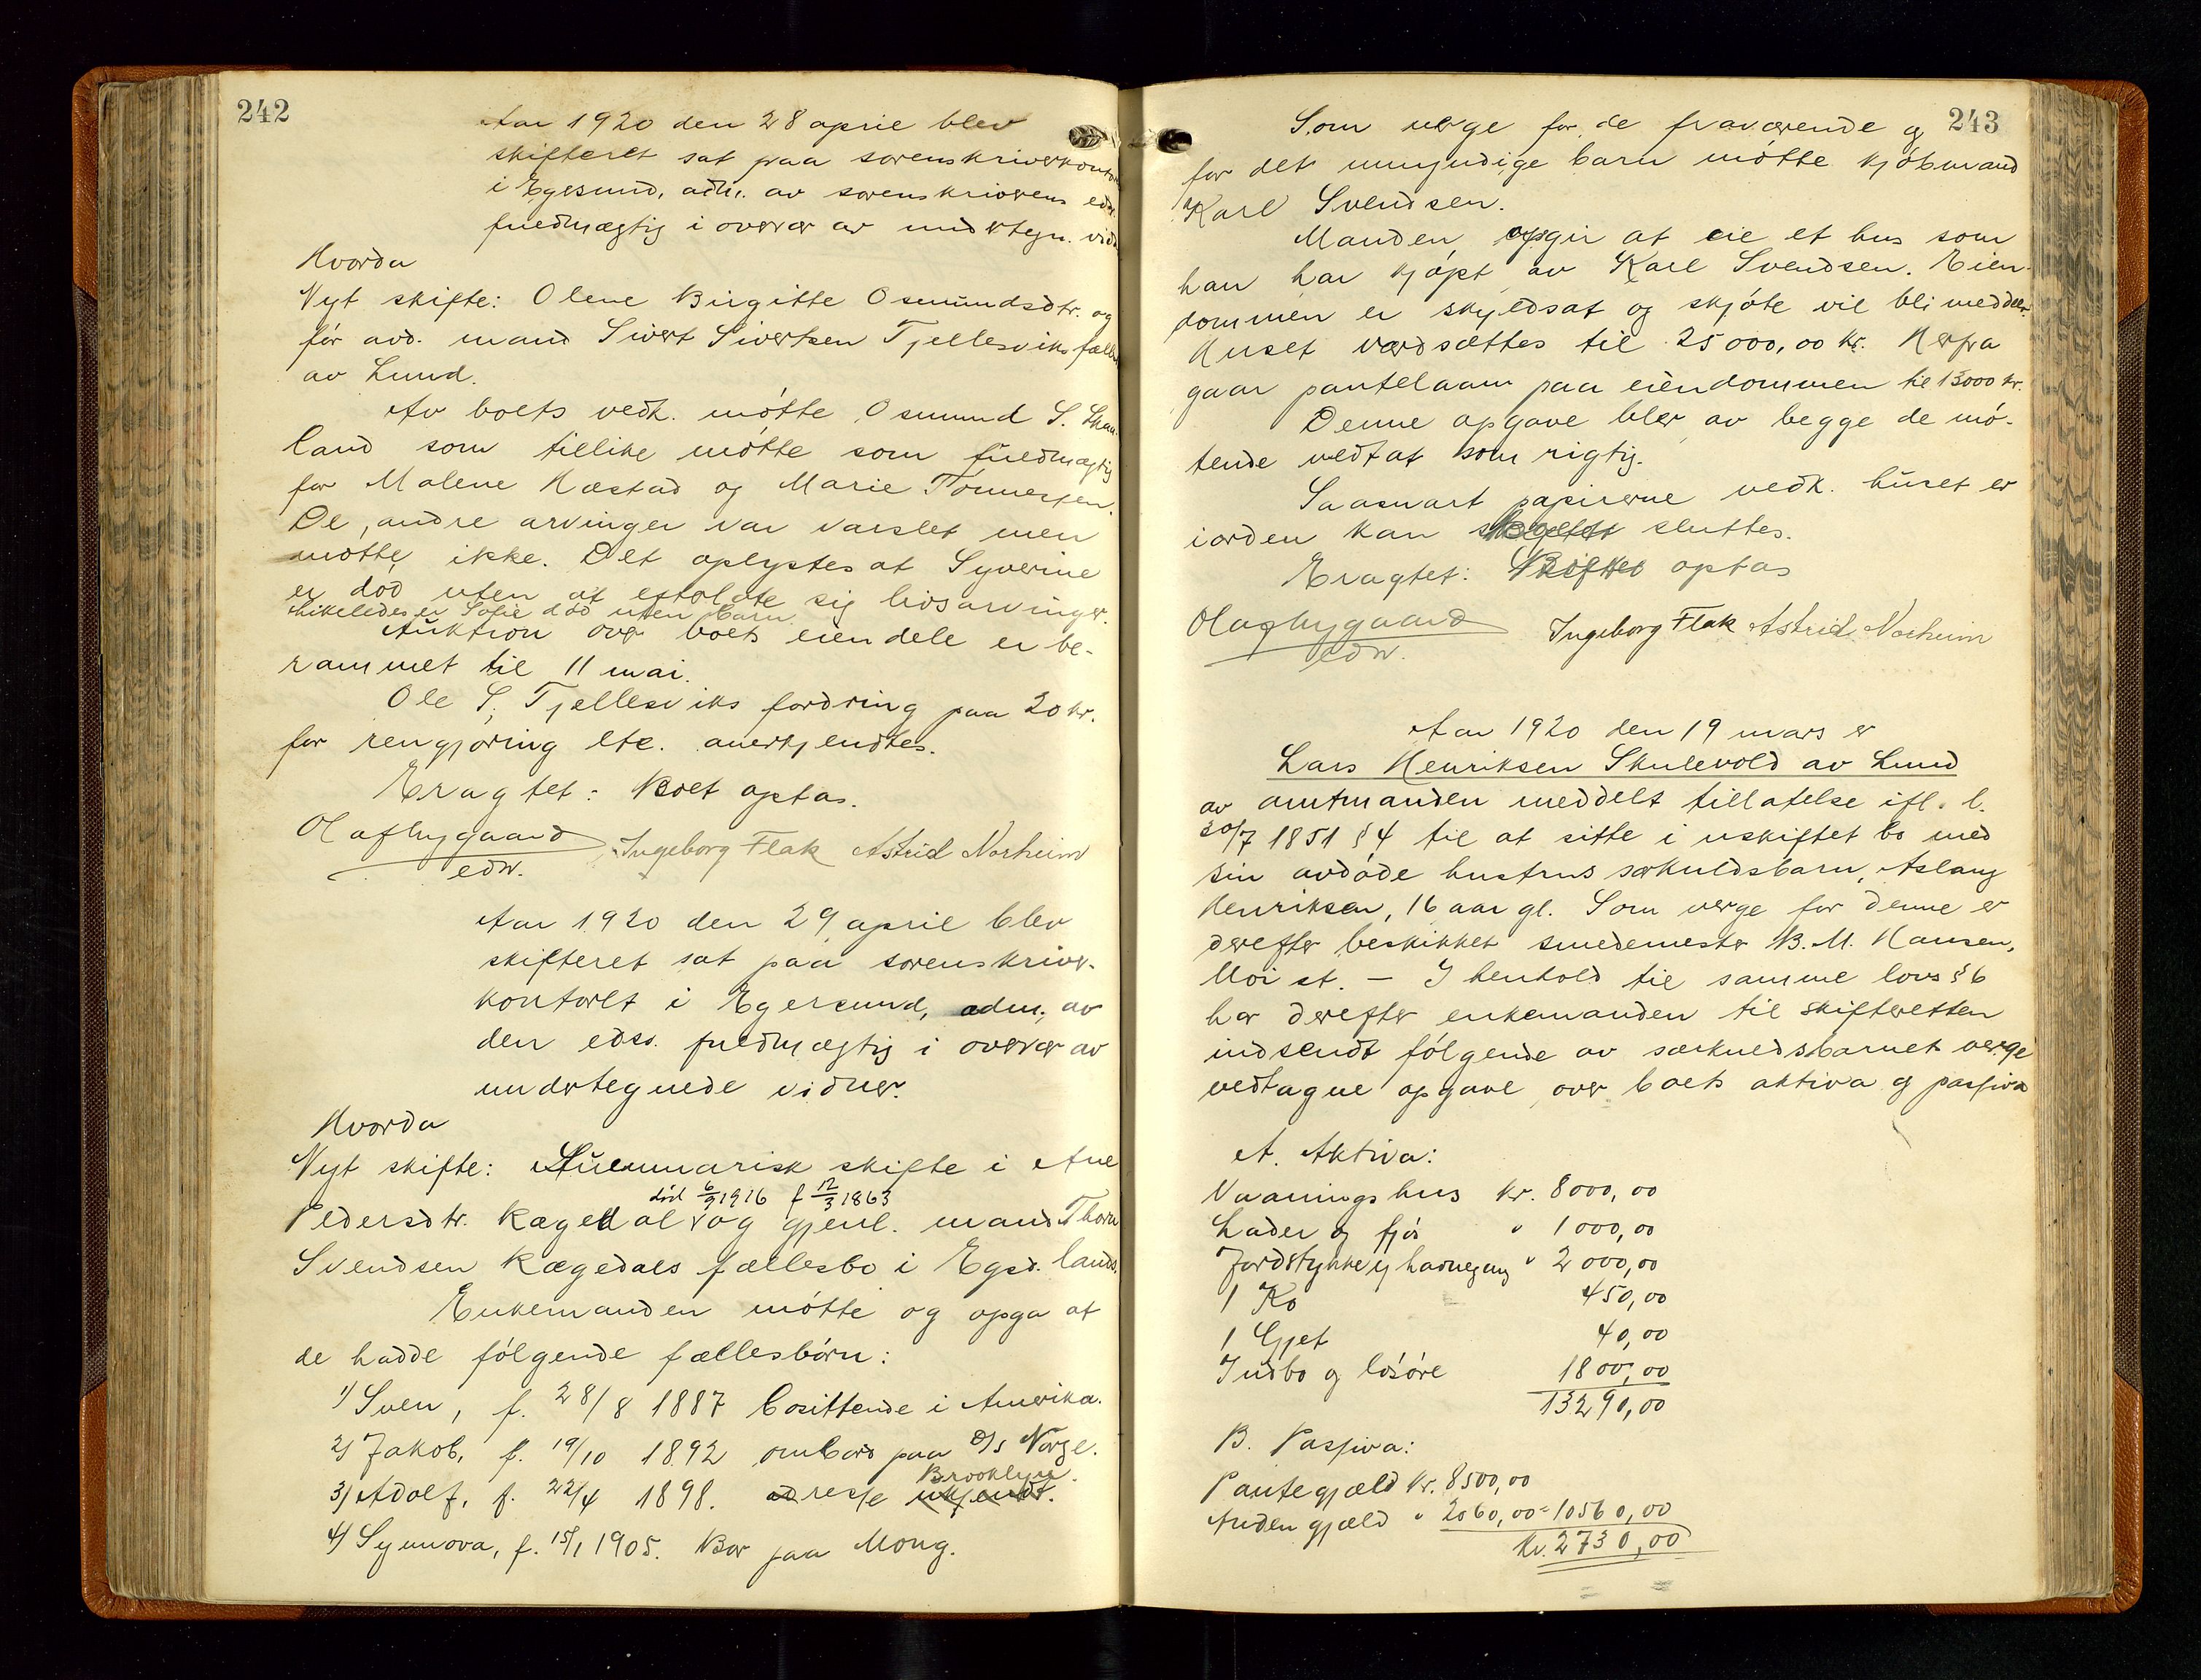 242
Aar 1920 den 28 april blev
skifteret sat paa sorenskriverkontor
i Egersund, adm. av sorenskriverens eds.
fuldmægtig i overvær av undertegn. vidn
Hvorda
Nyt skifte: Olene Birgitte Osmundsdtr. og
før avd. mand Sivert Sivertsen Tjellesviks fælles
av Lund.
Av boets vedk. møtte Osmund S.
land som tillike møtte som fuldmægtig
for Malene Næstad og Marie Tønnessen.
De andre arvinger var varslet men
møtte ikke. Det oplystes at Syverine
er død uten at efterlate sig livsarvinger.
Likeledes er Sofie død uten barn.
Auktion over boets eiendele er be-
rammet til 11 mai.
Ole S. Tjellesviks fordring paa 20 kr.
for rengjøring etc. anerkjendtes.
Eragtet: Boet optas.
Olaf Nygaard Ingeborg Flak Astrid Norheim
edsv.
Aar 1920 den 29 april blev
skifteret sat paa sorenskriver-
kontoret i Egersund, adm. av
den edsv. fuldmægtig i overvær av
undertegnede vidner.
Hvorda
Nyt skifte: Summarisk skifte i Ane
død 6/9 1916 f 12/3 1863
Pedersdtr. Kægedal og gjenl. mand Thorn
Svendsen Kægedals fællesbo i Egsd. lands.
Enkemanden møtte og opga at
de hadde følgende fællesbørn:
1) Sven, f. 28/8 1887 bosittende i Amerika.
2) Jakob, f. 19/10 1892 ombord paa D/s Norge.
Brooklyn.
3) Adolf, f. 22/4 1898. adresse ukjendt.
4) Synnøva, f. 15/1 1905. Bor paa Mong.
243
Som verge for de fraværende og
for det umyndige barn møtte kjøbmand
Karl Svendsen.
Manden opgir at eie et hus som
han har kjøpt av Karl Svendsen. Eien-
dommen er skyldsat og skjøte vil bli meddelt.
Huset værdsættes til 25000,00 kr. Herfra
gaar pantelaan paa eiendommen til 13000 kr.
Denne opgave blev av begge de mø-
tende vedtat som rigtig.
Saasnart papirerne vedk. huset er
iorden kan skiftet sluttes.
Eragtet: Skiftet optas
Olaf Nygaard Ingeborg Flak Astrid Norheim
edsv.
Aar 1920 den 19 mars er
Lars Henriksen Skulevold av Lund
av amtmanden meddelt tillatelse ifl. l.
30/7 1851 § 4 til at sitte i uskiftet bo med
sin avdøde hustrus særkuldsbarn, Aslaug
Henriksen, 16 aar gl. Som verge for denne er
derefter beskikket smedemester B. M. Hansen,
Moi st. - I henhold til samme lovs § 6
har derefter enkemanden til skifteretten
indsendt følgende av særkuldsbarnet verge
vedtagne opgave over boets aktiva og passiva
A. Aktiva:
Vaaningshus kr. 8000,00
Lader og fjøs " 1000,00
Jordstykke og havnegang " 2000,00
1 Ko 450,00
1 Gjet 40,00
Indbo og løsøre 1800,00
13290,00
B. Passiva:
Pantegjæld kr. 8500,00
Anden gjæld " 2060,00 = 10560,00
Kr. 2730,00